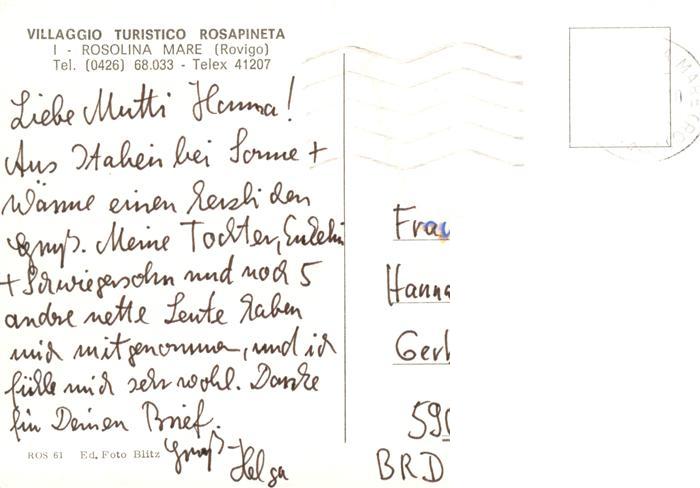 VILLAGGIO TURISTICO ROSAPINETA
I - ROSOLINA MARE (Rovigo)
Tel. (0426) 68.033 - Telex 41207
Liebe Mutti Hanna!
Aus Italien bei Sonne +
Wärme einen herzlichen
Gruß. Meine Tochter, Enkelin
+ Schwiegersohn und noch 5
andre nette Leute haben
mich mitgenommen, und ich
fühle mich sehr wohl. Danke
für Deinen Brief.
Gruß Helga
ROS 61 Ed. Foto Blitz
Frau
Hanna
Gerh
590
BRD
MARE (RO)